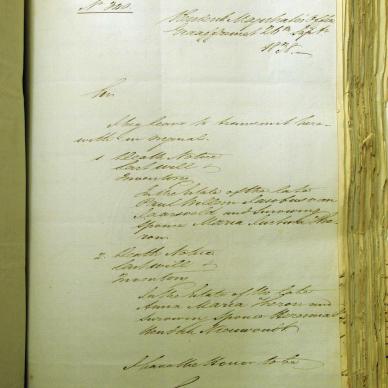 Resident Magistrates Office
Graaffreinet 26th Septr
1838.
Sir
I beg leave to transmit here-
with in original.
1 Death Notice
Last will &
Inventory
In the Estate of the late
Paul Willem Jacobus van
Jaarsveld and Surviving
Spouse Maria
ron.
2. Death Notice
Last will &
Inventory
In the Estate of the late
Anna Maria Theron and
Surviving Spouse
Hendrik Nieuwoudt
I have the Honor to be